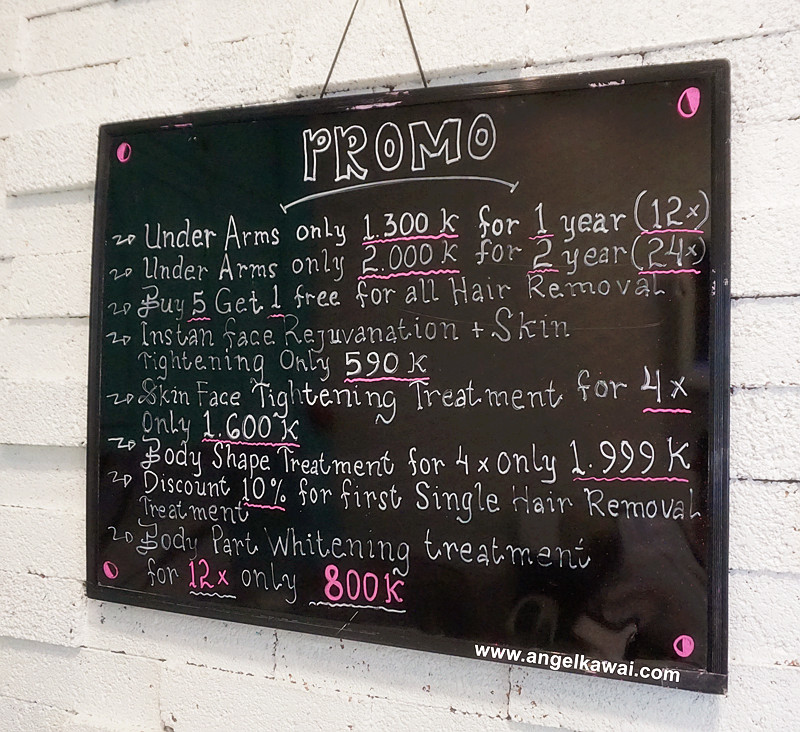 PROMO
Under Arms only 1.300 k for 1 year (12x)
Under Arms only 2.000 k for 2 year (24x)
Buy 5 Get 1 free for all Hair Removal
Instan face Rejuvanation + Skin
Tightening Only 590 k
Skin Face Tightening Treatment for 4x
Only 1.600 k
Body Shape Treatment for 4x only 1.999 k
Discount 10% for first Single Hair Removal
Treatment
Body Part Whitening treatment
for 12x only 800k
www.angelkawai.com